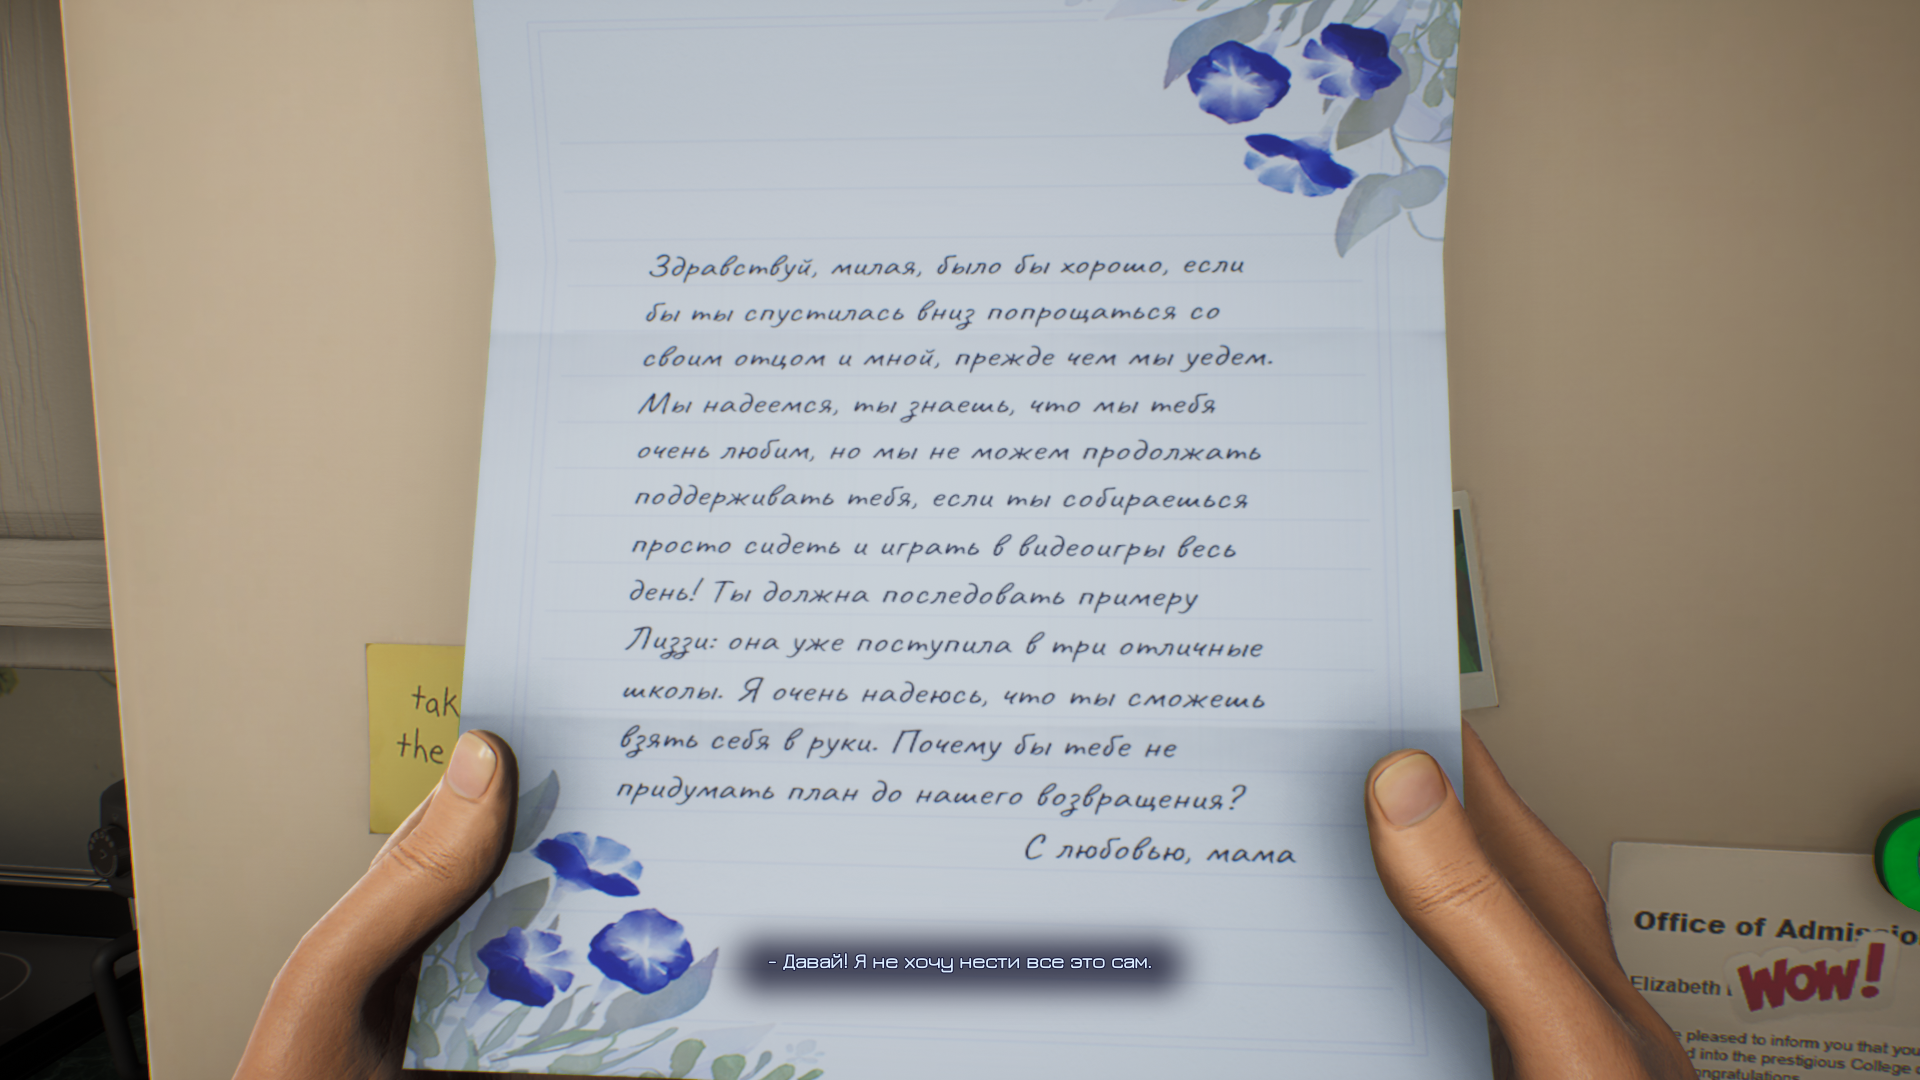 Здравствуй, милая, было бы хорошо, если
бы ты спустилась вниз попрощаться со
своим отцом и мной, прежде чем мы уедем.
Мы надеемся, ты знаешь, что мы тебя
очень любим, но мы не можем продолжать
поддерживать тебя, если ты собираешься
просто сидеть и играть в видеоигры весь
день! Ты должна последовать примеру
Лиззи: она уже поступила в три отличные
школы. Я очень надеюсь, что ты сможешь
взять себя в руки. Почему бы тебе не
придумать план до нашего возвращения?
С любовью, мама
the
- Давай! Я не хочу нести все это сам.
Office of
Elizabeth
WOW!
pleased to inform you that you
into the prestigious College